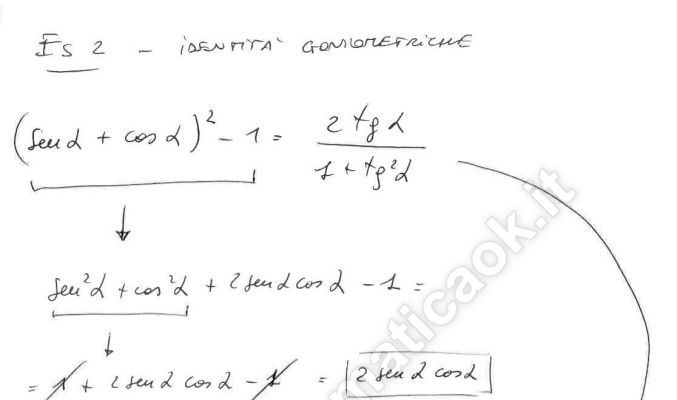 Es 2 - IDENTITÀ GONIOMETRICHE
(sen α + cos α)² - 1 = 2 tg α / 1 + tg² α
sen² α + cos² α + 2 sen α cos α - 1 =
= 1 + 2 sen α cos α - 1 = 2 sen α cos α
maticaok.it